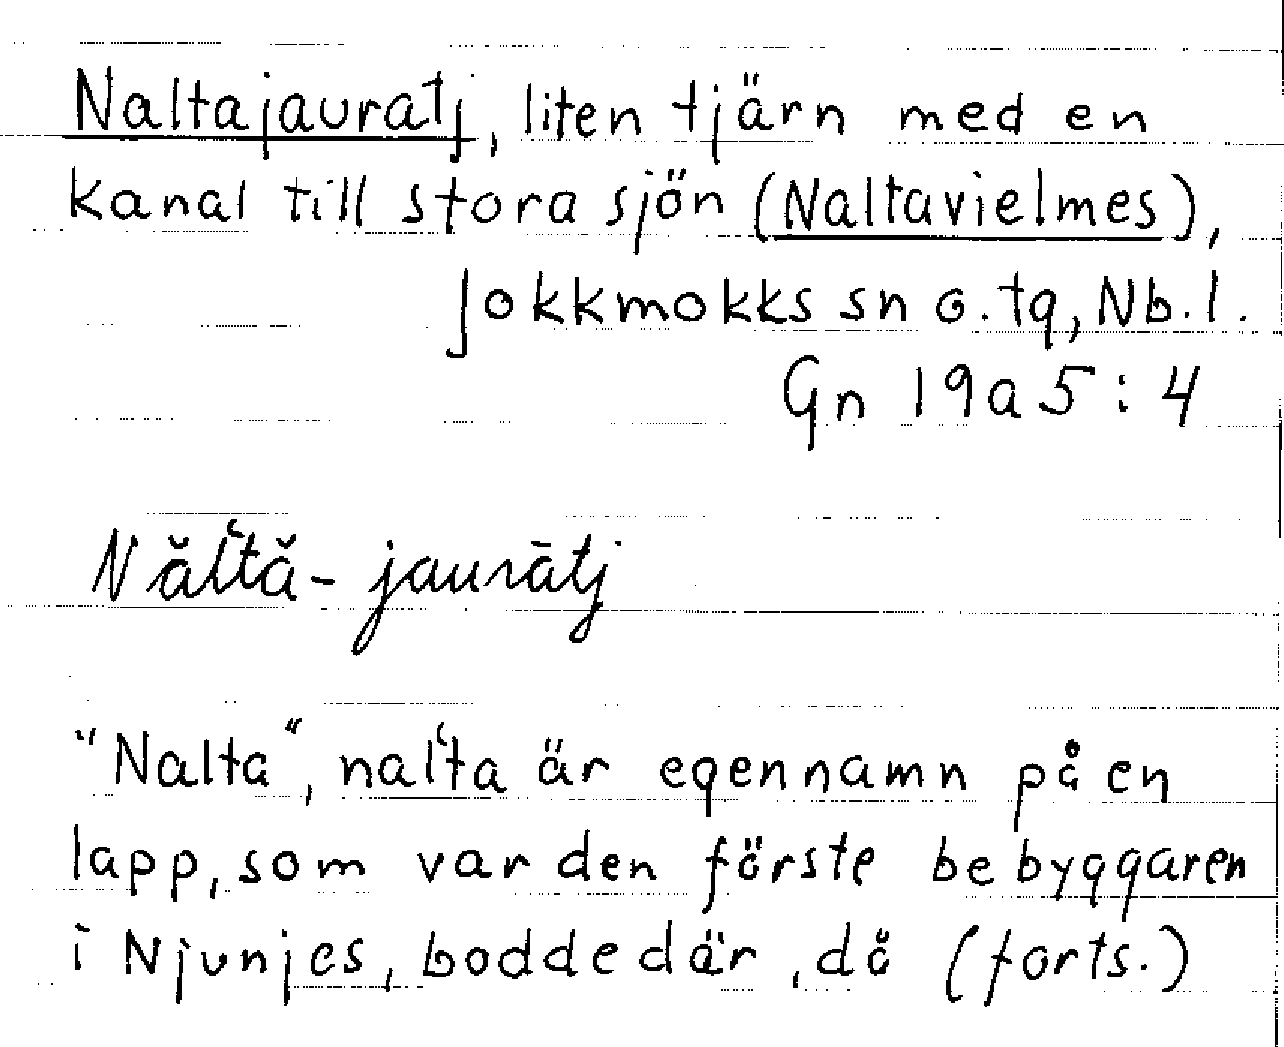 Naltajauratj, liten tjärn med en
kanal till stora sjön (Naltavielmes),
Jokkmokks sn o. tg, Nb. l.
Gn 19a5:4
Năl‘tă-jaurātj
"Nalta", nal‘ta är egennamn på en
lapp, som var den förste bebyggaren
i Njunjes, bodde där, då (forts.)